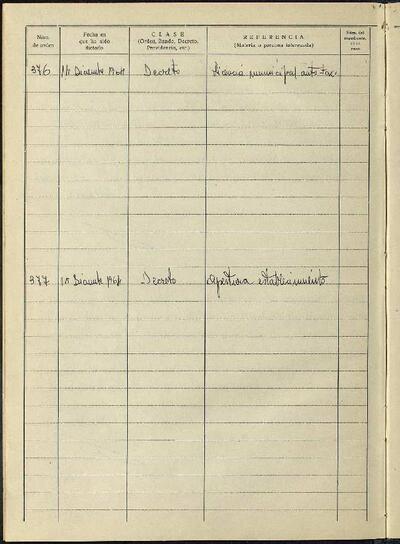 Núm. de orden
Fecha en que ha sido dictado
CLASE (Orden, Bando, Decreto, Providencia, etc.)
REFERENCIA (Materia o persona interesada)
Núm. del
376 Diciembre Decreto licencia municipal auto taxi
377 Diciembre Decreto apertura establecimiento